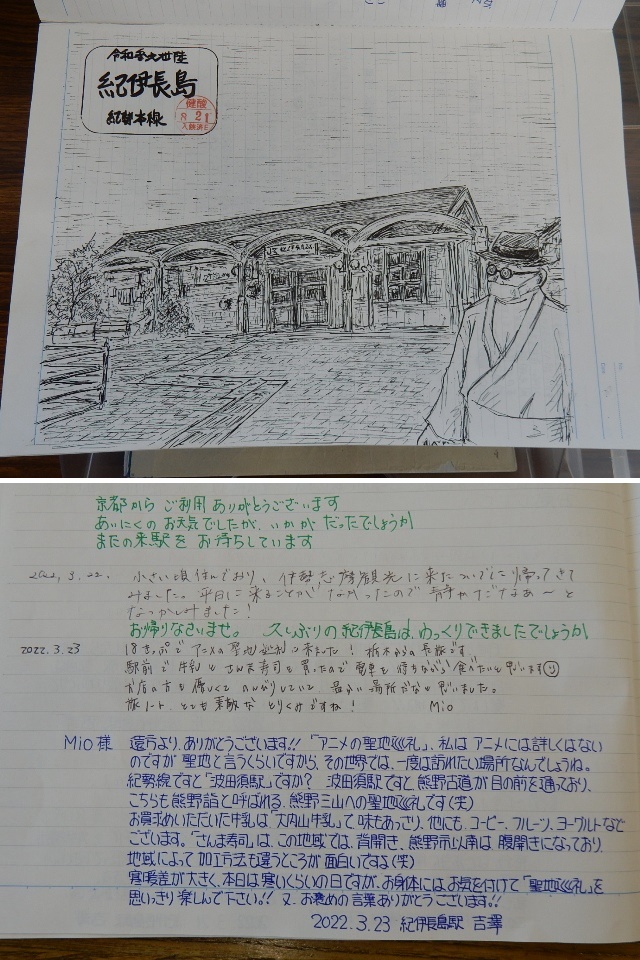 紀伊長島
紀勢本線
8 21
京都から ご利用 ありがとうございます
あいにくの お天気でしたが、いかが だったでしょうか
またの来駅を お待ちしています
2022.3.22. 小さい頃住んでおり、伊勢志摩観光に来たついでに帰ってきて
みました。平日に来ることがなかったので静かだなぁ〜と
なつかしみました!
お帰りなさいませ。 久しぶりの紀伊長島は、ゆっくりできましたでしょうか
2022.3.23 18きっぷで アニメの聖地巡礼に来ました! 栃木からの長旅です
駅前で 牛乳と さんま寿司を買ったので 電車を待ちながら 食べたいと思います
お店の方も優しくて のんびりしていて 良い場所だなと思いました。
旅ノート とても素敵な とりくみですね! Mio
Mio 様 遠方より、ありがとうございます!! 「アニメの聖地巡礼」、私は アニメには詳しくはない
のですが 聖地と言うくらいですから、その世界では、一度は訪れたい場所なんでしょうね。
紀勢線ですと「波田須駅」ですか? 波田須駅ですと、熊野古道が目の前を通っており、
こちらも熊野詣と呼ばれる、熊野三山への聖地巡礼です(笑)
お買求めいただいた牛乳は「大内山牛乳」で 味もあっさり、他にも、コーヒー、フルーツ、ヨーグルトなど
ございます。「さんま寿司」は、この地域では、背開き、熊野市以南は 腹開きになっており、
地域によって 加工方法も違うところが 面白いですよ(笑)
寒暖差が大きく、本日は寒いくらいの日ですが、お身体には、お気を付けて「聖地巡礼」を
思いっきり楽しんで下さい!! 又、お褒めの言葉ありがとうございます!!
2022.3.23 紀伊長島駅 吉澤